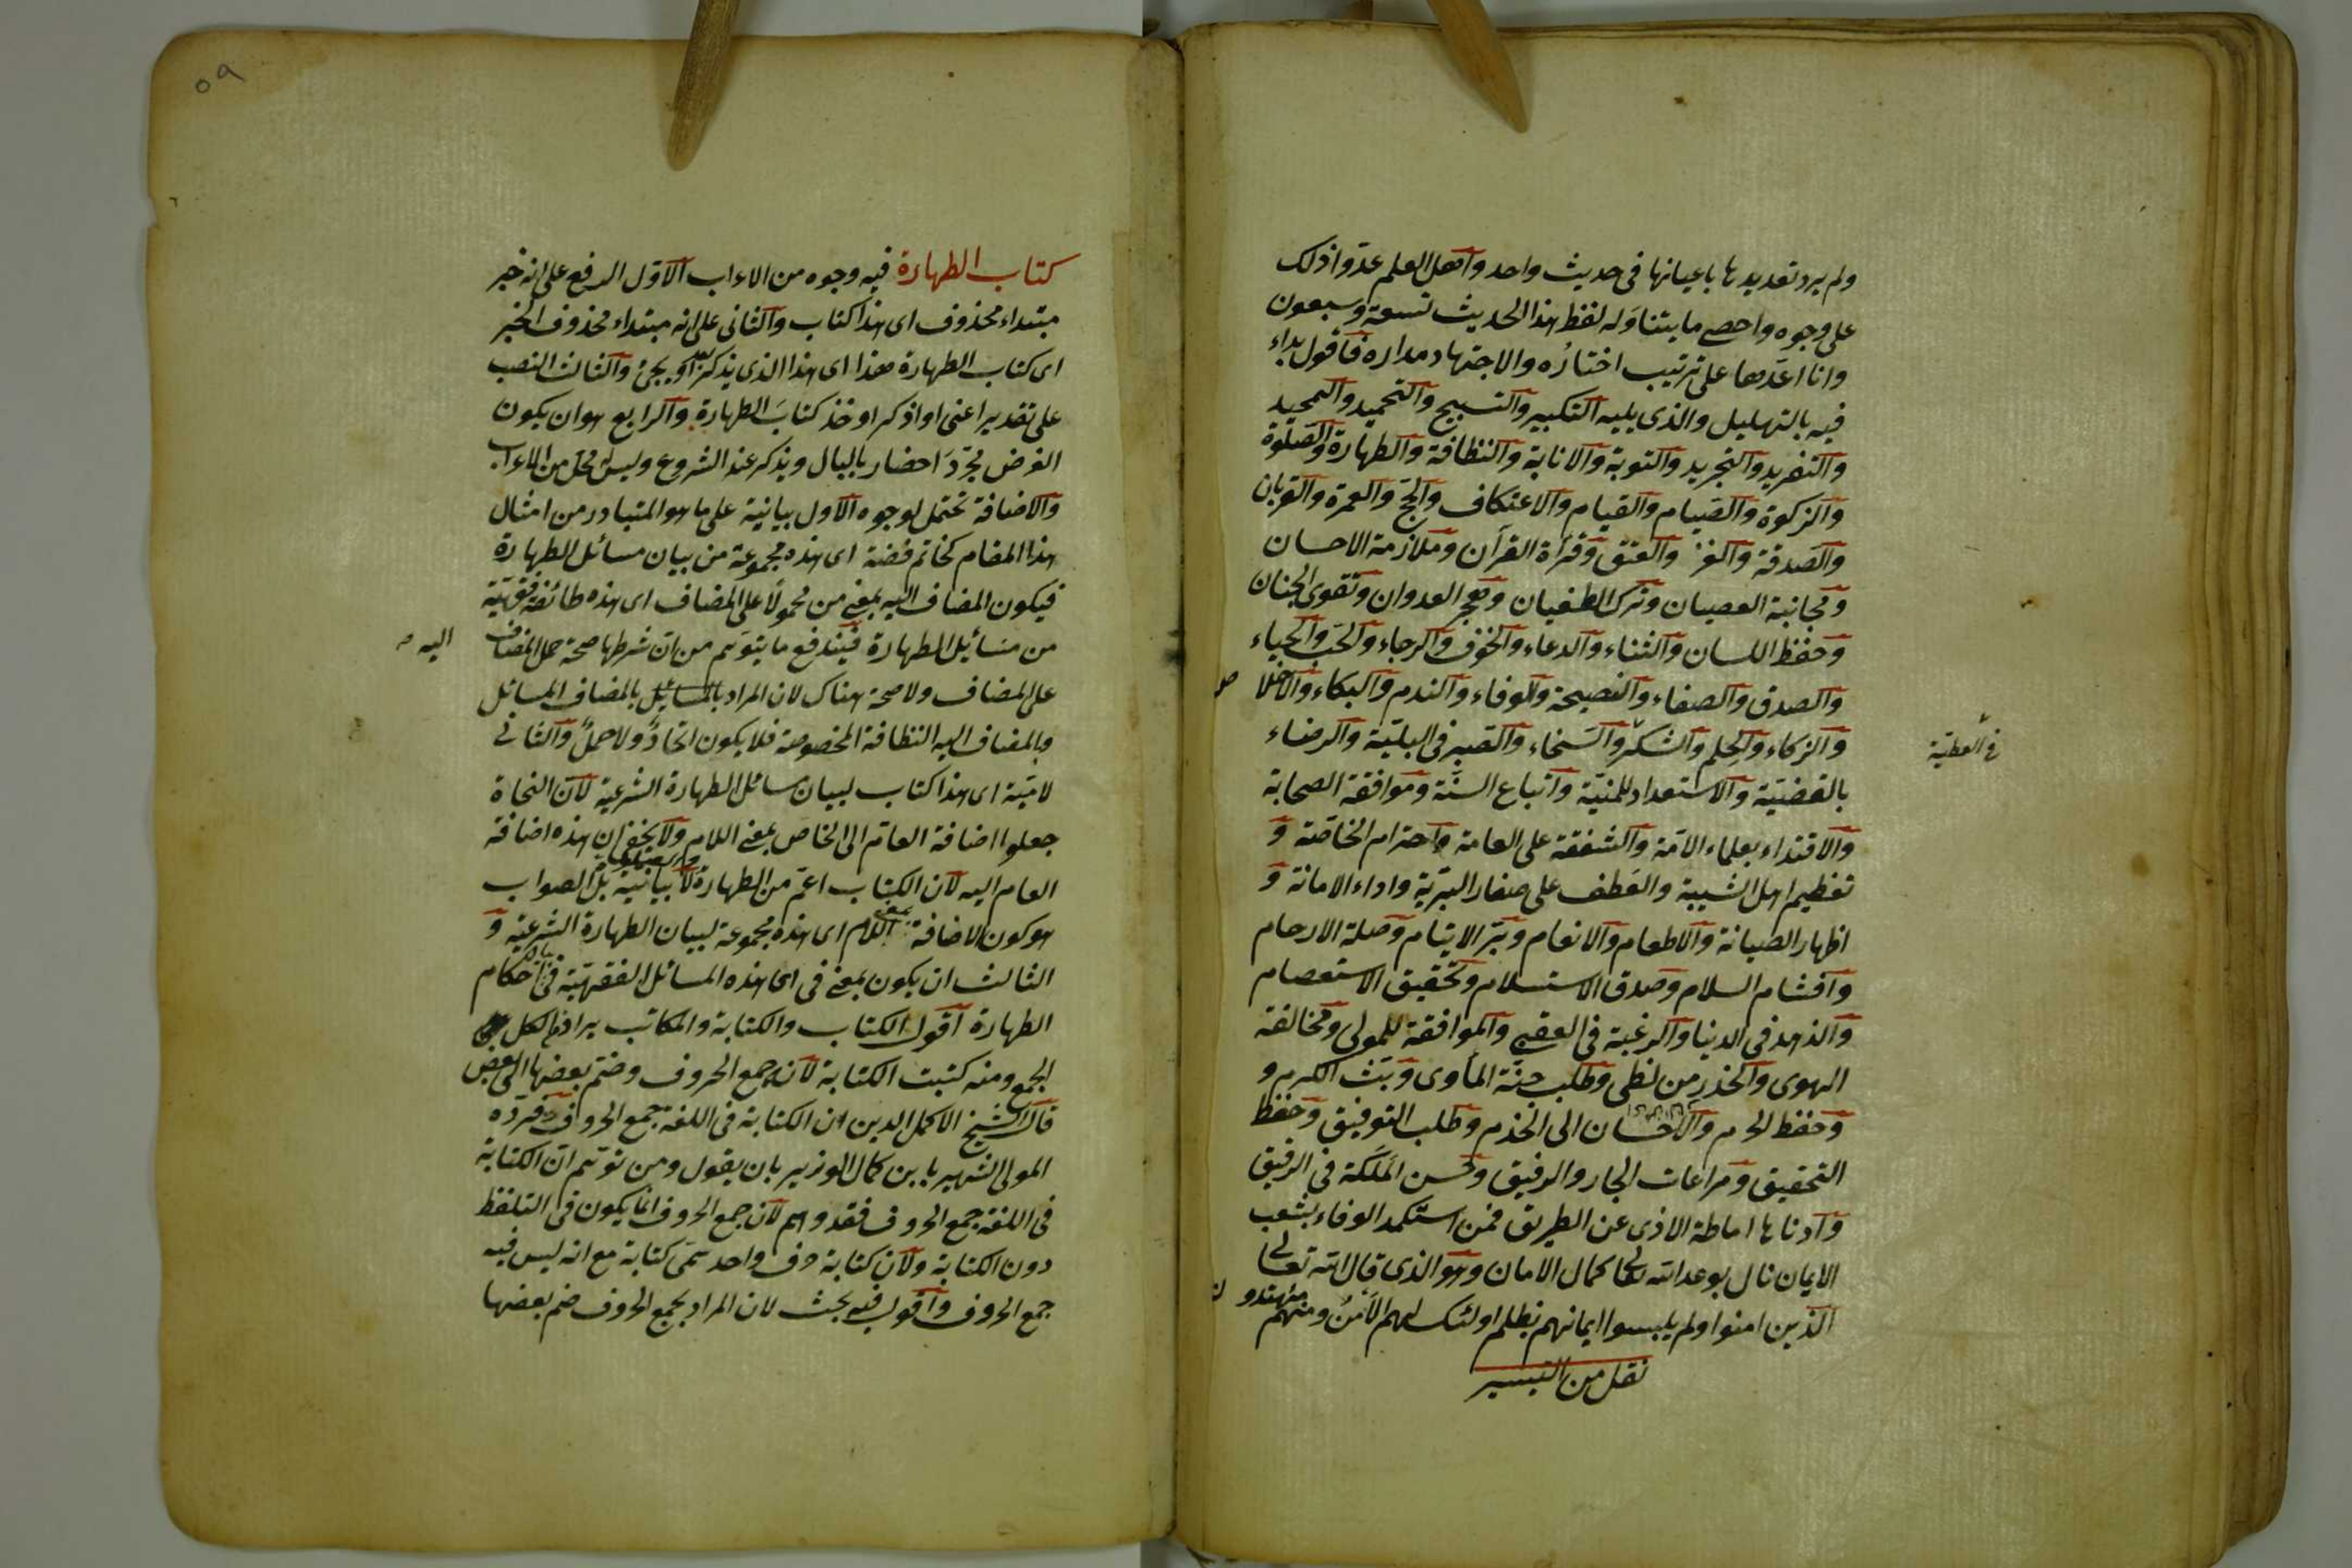 ولم يرد تعديدها باعيانها فى حديث واحد واهل العلم عدوا ذلك
على وجوه واحصى ما يتناوله لفظ هذا الحديث تسعة وسبعون
وانا اعدها على ترتيب اختاره والاجتهاد مداره فاقول بداء
فيه بالتهليل والذى يليه التكبير والتسبيح والتحميد والتمجيد
والتفريد والتجريد والتوبة والانابة والنظافة والطهارة والصلوة
والزكوة والصيام والقيام والاعتكاف والحج والعمرة والقربان
والصدقة والغز والعتق وقرأة القرآن وملازمة الاحسان
ومجانبة العصيان وترك الطغيان وهجر العدوان وتقوى الجنان
وحفظ اللسان والثناء والدعاء والخوف والرجاء والحب والحياء
والصدق والصفاء والنصيحة والوفاء والندم والبكاء والاخلا
ص
والزكاء والحلم والشكر والسخاء والصبر فى البلية والرضاء
فى العطية
بالقضية والاستعداد للمنية واتباع السنة وموافقة الصحابة
والاقتداء بعلماء الامة والشفقة على العامة واحترام الخاصة و
تعظيم اهل الشيبة والعطف على صغار البرية واداء الامانة و
اظهار الصيانة والاطعام والانعام وبر الايتام وصلة الارحام
وافشام السلام وصدق الاستسلام وتحقيق الاستعصام
والزهد فى الدنيا والرغبة فى العقبى والموافقة للمولى ومخالفة
الهوى والحذر من لظى وطلب جنة المأوى وبث الكرم و
وحفظ الحرم والاحسان الى الخدم وطلب التوفيق وحفظ
التحقيق ومراعات الجار والرفيق وحسن الملكة فى الرقيق
وادناها اماطة الاذى عن الطريق فمن استكمد الوفاء بشعب
الايمان نال بوعد الله تعالى كمال الامان وهو الذى قال الله تعالى
الذين امنوا ولم يلبسوا ايمانهم بظلم اولئك لهم الامن ومنهم
مهتدو
ن
نقل من التيسير
٥٩
كتاب الطهارة فيه وجوه من الاعراب الاول الرفع على انه خبر
مبتداء محذوف اى هذا كتاب والثانى على انه مبتداء محذوف الخبر
اى كتاب الطهارة هذا اى هذا الذى يذكر او يجئ والثالث النصب
على تقدير اعنى او اذكر او خذ كتاب الطهارة والرابع هو ان يكون
الغرض مجرد احضار بالبال ويذكر عند الشروع وليس له محل من الاعراب
والاضافة تحتمل لوجوه الاول بيانية على ما هو المتبادر من امثال
هذا المقام كخاتم فضة اى هذه مجموعة من بيان مسائل الطهارة
فيكون المضاف اليه بمعنى من محمولا على المضاف اى هذه طائفة فقهية
من مسائيل الطهارة فيندفع ما يتوهم من ان شرطها صحة حمل المضاف
اليه
على المضاف ولا صحة هناك لان المراد بالمسائيل بالمضاف المسائل
وبالمضاف اليه النظافة المخصوصة فلا يكون اتحاد ولا حمل والثانى
لامية اى هذا كتاب لبيان مسائل الطهارة الشرعية لان النحاة
جعلوا اضافة العام الى الخاص بمعنى اللام ولا يخفى ان هذه اضافة
العام اليه لان الكتاب اعم من الطهارة لا بيانية بل الصواب
هو كون الاضافة بمعنى اللام اى هذه مجموعة لبيان الطهارة الشرعية و
الثالث ان يكون بمعنى فى اى هذه المسائل الفقهية فى بيان احكام
الطهارة اقول الكتاب والكتابة والمكاتب يراد فى الكل
الجمع ومنه كتبت الكتابة لانه جمع الحروف وضم بعضها الى بعض
قال الشيخ الاكمل الدين ان الكتابة فى اللغة جمع الحروف فرده
المولى الشهير بابن كمال الوزير بان يقول ومن توهم ان الكتابة
فى اللغة جمع الحروف فقد وهم لان جمع الحروف انما يكون فى التلفظ
دون الكتابة ولان كتابة حرف واحد سمى كتابة مع انه ليس فيه
جمع الحروف واقول فيه بحث لان المراد بجمع الحروف ضم بعضها